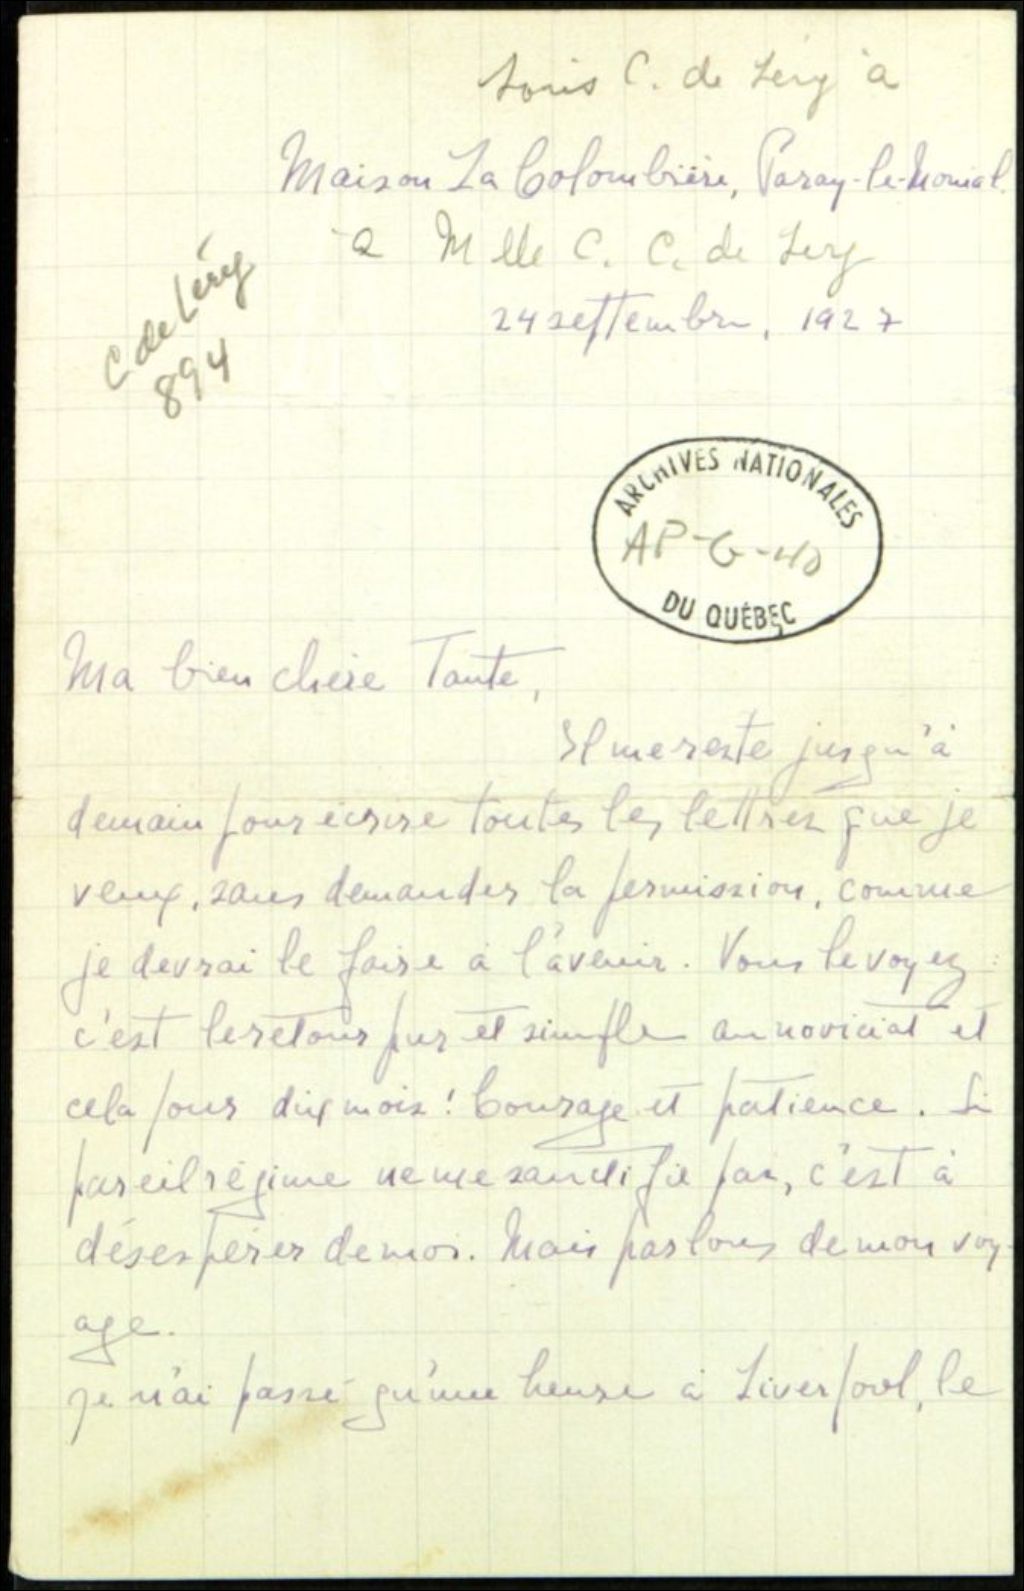 Louis C. de Léry à
Maison La Colombière, Paray-le-Monial.
à Mlle C. C. de Léry
24 septembre, 1927
C de Léry
894
ARCHIVES NATIONALES
AP-G-40
DU QUÉBEC
Ma bien chère Tante,
Il me reste jusqu'à
demain pour écrire toutes les lettres que je
veux, sans demander la permission, comme
je devrai le faire à l'avenir. Vous le voyez :
c'est le retour pur et simple au noviciat et
cela pour dix mois! Courage et patience. Si
pareil régime ne me sanctifie pas, c'est à
désespérer de moi. Mais parlons de mon voy-
age.
Je n'ai passé qu'une heure à Liverpool, le